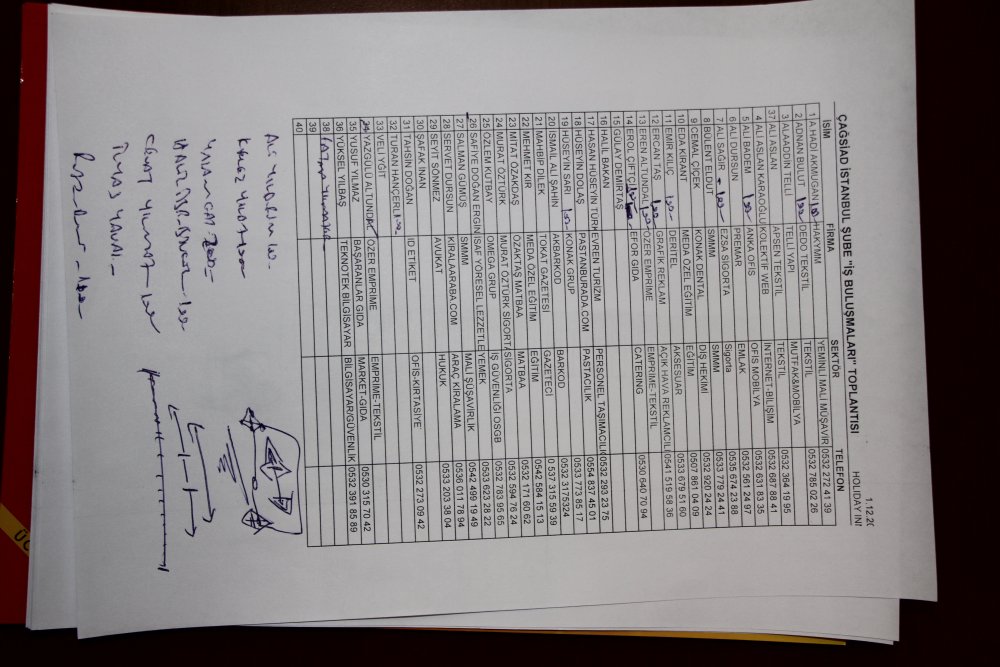 1.12.20
HOLIDAY INN
ÇAĞSİAD İSTANBUL ŞUBE "İŞ BULUŞMALARI" TOPLANTISI
İSİM FİRMA SEKTÖR TELEFON
1 A.HADİ AKMUGAN HAKYMM YEMİNLİ MALİ MÜŞAVİR 0532 272 41 39
2 ADNAN BULUT DEDO TEKSTİL TEKSTİL 0532 785 02 26
3 ALAADDİN TELLİ TELLİ YAPI MUTFAK&MOBİLYA 0532 364 19 95
37 ALİ ASLAN APSEN TEKSTİL TEKSTİL 0532 687 88 41
4 ALİ ASLAN KARAOĞLU KOLEKTİF WEB İNTERNET-BİLİŞİM 0532 631 83 35
5 ALİ BADEM ANKA OFİS OFİS MOBİLYA 0532 561 24 97
6 ALİ DURSUN PREMAR EMLAK 0535 674 23 88
7 ALİ SAĞIR EZSA SİGORTA Sigorta 0533 779 24 41
8 BÜLENT ELDUT SMMM SMMM 0532 920 24 24
9 CEMAL ÇİÇEK KONAK DENTAL DİŞ HEKİMİ 0507 861 04 09
10 EDA KIRANT MEDA ÖZEL EĞİTİM EĞİTİM 0533 679 51 60
11 EMİR KILIÇ DERİTEL AKSESUAR
12 ERCAN TAŞ GRAFİK REKLAM AÇIK HAVA REKLAMCILI 0541 519 58 36
13 EREN ALTUNDAL ÖZER EMPRİME EMPRİME-TEKSTİL
14 EROL ÇEFTÇİ EFOR GIDA CATERİNG 0530 640 70 94
15 GÜLAY DEMİRTAŞ
16 HALİL BAKAN
17 HASAN HÜSEYİN TÜRK EVREN TURİZM PERSONEL TAŞIMACILI 0532 293 23 75
18 HÜSEYİN DOLAŞ PASTANBURADA.COM PASTACILIK 0554 837 45 01
19 HÜSEYİN SARI KONAK GRUP 0533 773 85 17
20 İSMAİL ALİ ŞAHİN AKBARKOD BARKOD 0532 3175324
21 MAHBİP DİLEK TOKAT GAZETESİ GAZETECİ 0 537 315 59 39
22 MEHMET KIR MEDA ÖZEL EĞİTİM EĞİTİM 0542 584 15 13
23 MİTAT ÖZAKDAŞ ÖZAKTAŞ MATBAA MATBAA 0532 171 60 62
24 MURAT ÖZTÜRK MURAT ÖZTÜRK SİGORTA SİGORTA 0532 594 76 24
25 ÖZLEM KUTBAY OMEGA GRUP İŞ GÜVENLİĞİ OSGB 0532 783 95 65
26 SAFİYE DOĞAN ERGİN SAF YÖRESEL LEZZETLE YEMEK 0533 623 28 22
27 SALMAN GÜMÜŞ SMMM MALİ ŞÜŞAVİRLİK 0542 499 19 49
28 SERVET DURSUN KİRALAARABA.COM ARAÇ KİRALAMA 0536 011 78 94
29 SEYİT SÖNMEZ AVUKAT HUKUK 0533 203 38 04
30 ŞAFAK İNAN
31 TAHSİN DOĞAN ID ETİKET OFİS-KIRTASİYE 0532 273 09 42
32 TURAN HANÇERLİ
33 VELİ YİĞİT
34 YAZGÜLÜ ALTUNDAL ÖZER EMPRİME EMPRİME-TEKSTİL
35 YUSUF YILMAZ BAŞARANLAR GIDA MARKET-GIDA 0530 315 70 42
36 YÜKSEL YILBAŞ TEKNOTEK BİLGİSAYAR BİLGİSAYAR/GÜVENLİK 0532 391 85 89
38
39
40